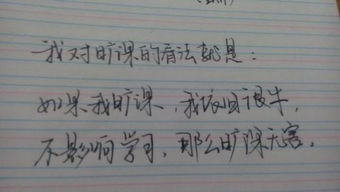 我对旷课的看法就是：
如果我旷课，我依旧很牛，
不影响学习，那么旷课无害。